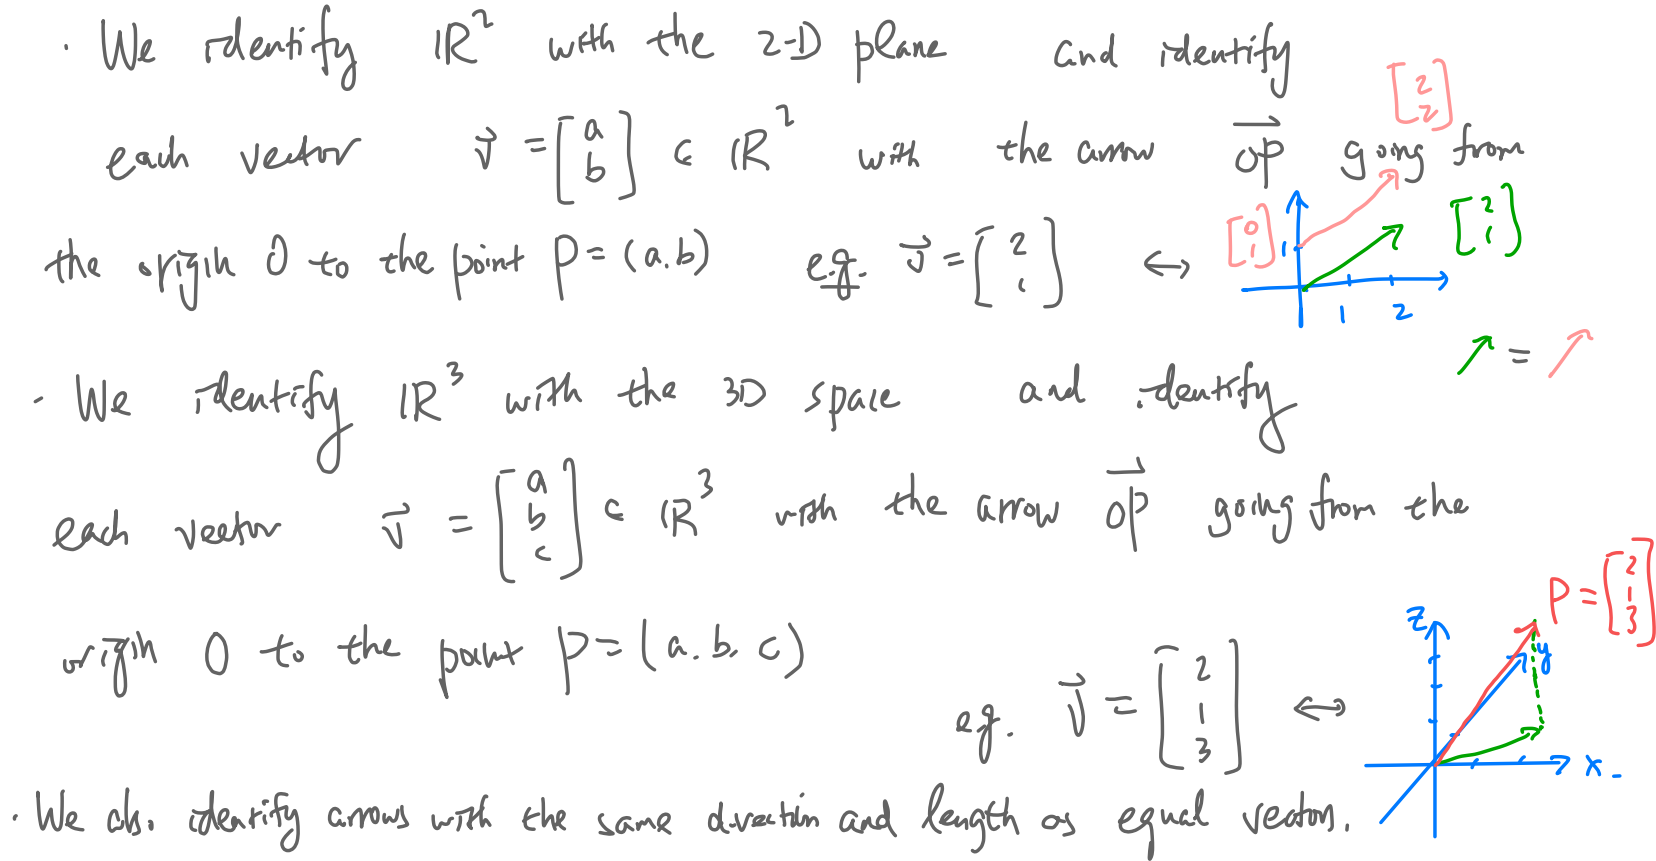 · We identify ℝ² with the 2-D plane and identify
each vector v⃗ = [a b] ∈ ℝ² with the arrow OP⃗ going from
[2 2]
the origin 0 to the point P = (a.b) e.g. v⃗ = [2 1] ↔ [0 1] 1 [2 1]
1 2
↗ = ↗
· We identify ℝ³ with the 3D space and identify
each vector v⃗ = [a b c] ∈ ℝ³ with the arrow OP⃗ going from the
origin 0 to the point P = (a.b.c)
e.g. v⃗ = [2 1 3] ↔
z y x
P = [2 1 3]
· We also identify arrows with the same direction and length as equal vectors.